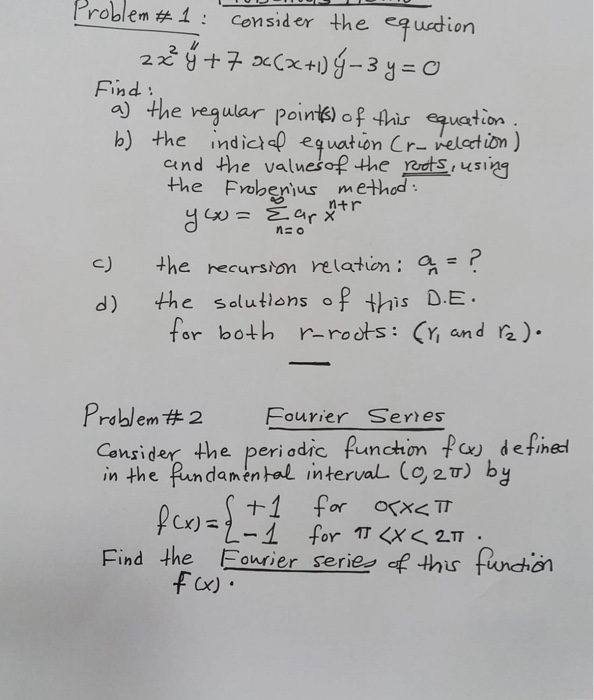 Problem # 1 : consider the equation
2x² y'' + 7 x(x+1) y' - 3 y = 0
Find :
a) the regular point(s) of this equation.
b) the indicial equation (r- relection)
and the values of the roots, using
the Frobenius method:
y(x) = ∞ Σ n=0 ar x^n+r
c) the recursion relation: an = ?
d) the solutions of this D.E.
for both r-roots: (r₁ and r₂).
Problem # 2 Fourier Series
Consider the periodic function f(x) defined
in the fundamental interval (0, 2π) by
f(x) = { +1 for 0<x<π
-1 for π <x< 2π .
Find the Fourier series of this function
f(x) .